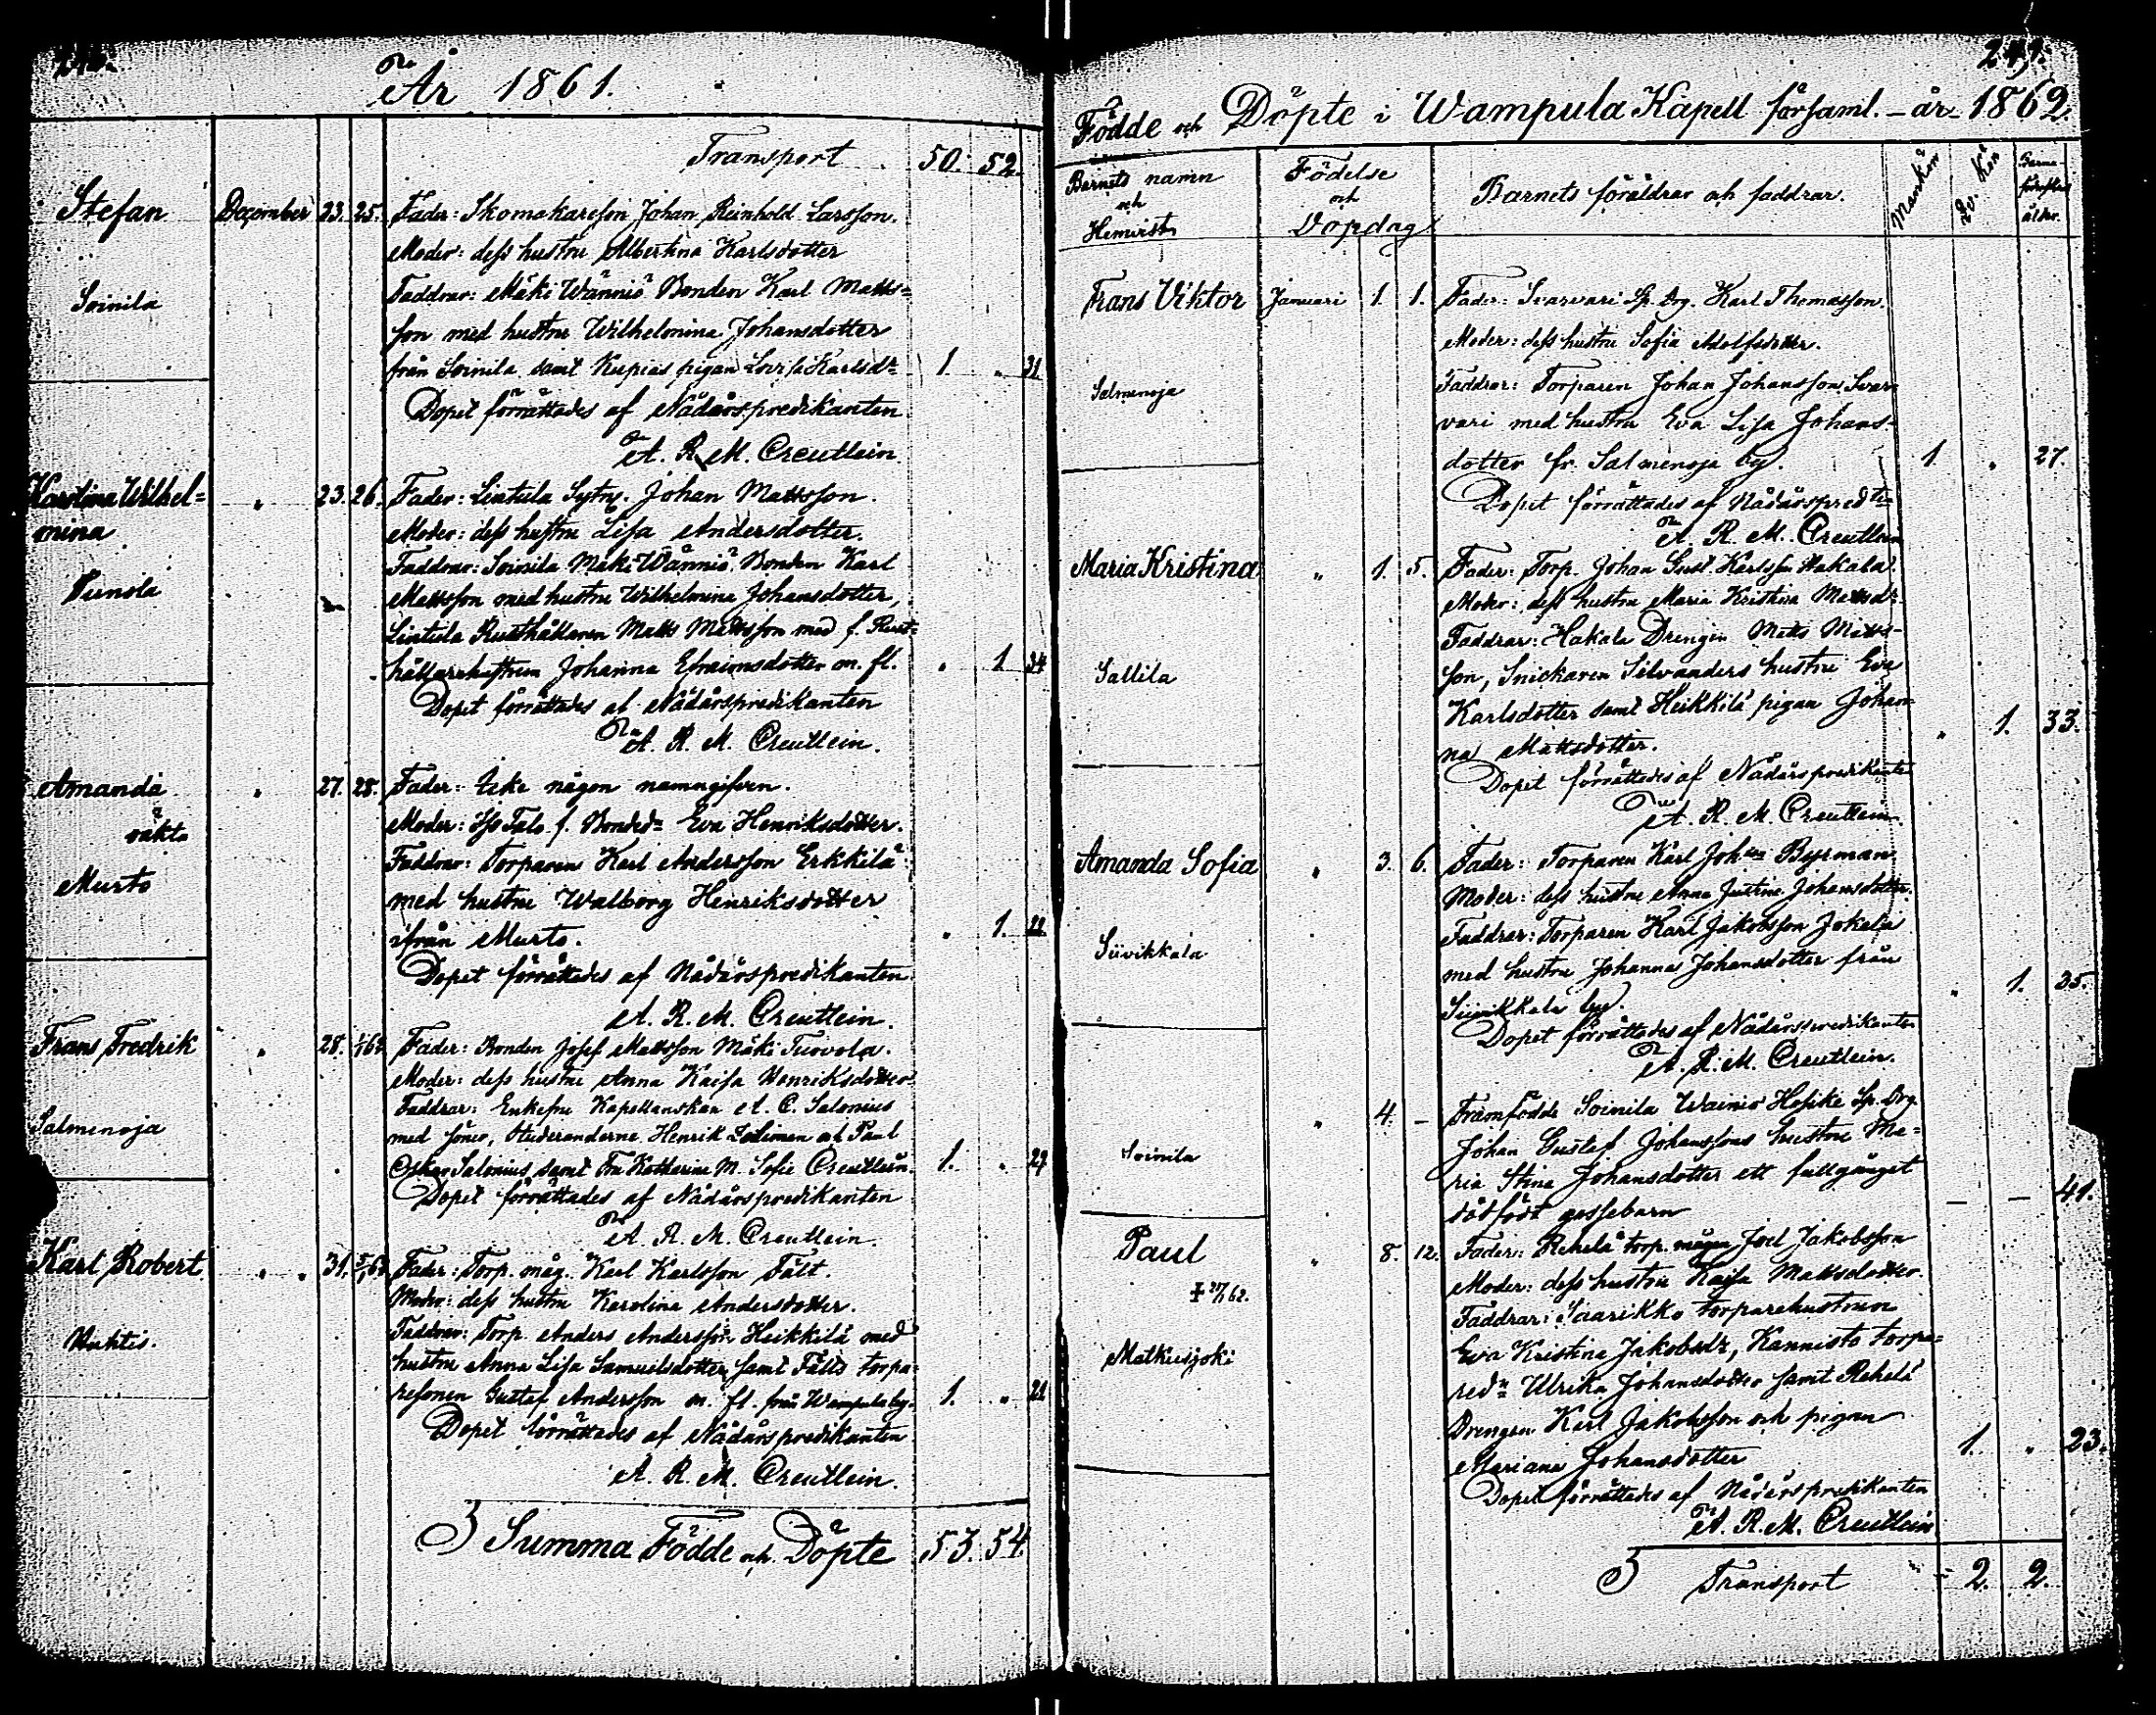 År 1861.
Transport 50. 52.
Stefan December 23. 25. Fader: Skomakaresson Johan Reinhold Larsson.
Moder: dess hustru Albertina Karlsdotter
Soinila Faddrar: Mäki Wänniö Bonden Karl Matts=
son med hustru Wilhelmina Johansdotter
från Soinila samt Kupias pigan Lovisa Karlsdr 1. „ 31
Dopet förrättades af Nådårspredikanten
A. R. M. Creutlein.
Karolina Wilhel= „ 23. 26. Fader: Lintula Sytng. Johan Mattsson.
mina Moder: dess hustru Lisa Andersdotter.
Faddrar: Soinila Mäki-Wänniö Bonden Karl
Mattsson med hustru Wilhelmina Johansdotter,
Lintula Rusthållaren Matts Mattsson med f. Rust=
hållarehustrun Johanna Efraimsdotter m. fl. „ 1. 34
Dopet förrättades af Nådårspredikanten
A. R. M. Creutlein.
Amanda „ 27. 28. Fader: Icke någon namngifven.
oäkta Moder: Iso Talo f. Bonded. Eva Henriksdotter.
Faddrar: Torparen Karl Andersson Erkkilä
Murto med hustru Walborg Henriksdotter
ifrån Murto. „ 1. 22
Dopet förrättades af Nådårspredikanten
A. R. M. Creutlein.
Frans Fredrik „ 28. 1/1 62 Fader: Bonden Josef Mattsson Mäki Tuovola.
Moder: dess hustru Anna Kaisa Henriksdotter
Faddrar: Enkefru Kapellanskan A. C. Salonius
Salmenoja med söner, Studeranderne Henrik och Paul
Oskar Salonius, samt Fru Katharina M. Sofie Creutlein. 1. „ 27
Dopet förrättades af Nådårspredikanten
A. R. M. Creutlein.
Karl Robert „ 31. 5/1 62 Fader: Torp. måg. Karl Karlsson Fält.
Moder: dess hustru Karolina Andersdotter.
Huhtis. Faddrar: Torp. Anders Andersson Heikkilä med
hustru Anna Lisa Samuelsdotter, samt Fälts torpa=
resonen Gustaf Andersson m. fl. från Wampula by. 1. „ 21
Dopet förrättades af Nådårspredikanten
A. R. M. Creutlein.
Summa Födde och Döpte 53. 54.
241.
Födde och Döpte i Wampula Kapell församl. - år 1862.
Barnets namn
och
Hemvist
Födelse
och
Dopdag
Barnets föräldrar och faddrar.
Mankön
Qv. Kön
Barnaföderskans
ålder.
Frans Viktor Januari 1. 1. Fader: Svarvari Sp. Drg. Karl Thomasson.
Moder: dess hustru Sofia Adolfsdotter.
Salmenoja Faddrar: Torparen Johan Johansson Svar
vari med hustru Eva Lisa Johans-
dotter fr. Salmenoja by. 1. „ 27.
Dopet förrättades af Nådårspredten
A. R. M. Creutlein
Maria Kristina „ 1. 5. Fader: Torp. Johan Gust. Karlsson Hakala.
Moder: dess hustru Maria Kristina Mattsdr.
Faddrar: Hakala Drengen Matts Matts-
Sallila son, Snickaren Silvanders hustru Eva
Karlsdotter samt Heikkilä pigan Johan-
na Mattsdotter. „ 1. 33.
Dopet förrättades af Nådårspredikanten
A. R. M. Creutlein.
Amanda Sofia „ 3. 6. Fader: Torparen Karl Johan Byrman
Moder: dess hustru Anna Justina Johansdotter.
Faddrar: Torparen Karl Jakobsson Jokela
Siivikkala med hustru Johanna Johansdotter från
Siivikkala by. „ 1. 35.
Dopet förrättades af Nådårspredikanten
A. R. M. Creutlein.
„ 4. - Framfödde Soinila Wainio Hosike Sp. Drg.
Soinila Johan Gustaf Johanssons hustru Ma=
ria Stina Johansdotter ett fullgånget
dödfödt gossebarn — — 41.
Paul „ 8. 12. Fader: Rekelä torp. mågen Joel Jakobsson
Moder: dess hustru Kaisa Mattsdotter.
Faddrar: Saarikko torparehustrun
Matkusjoki Eva Kristina Jakobsdr, Kannisto torpa=
red. Ulrika Johansdotter samt Rekelä
Drengen Karl Jakobsson och pigan
Mariana Johansdotter 1. „ 23.
Dopet förrättades af Nådårspredikanten
A. R. M. Creutlein
Transport 2. 2.